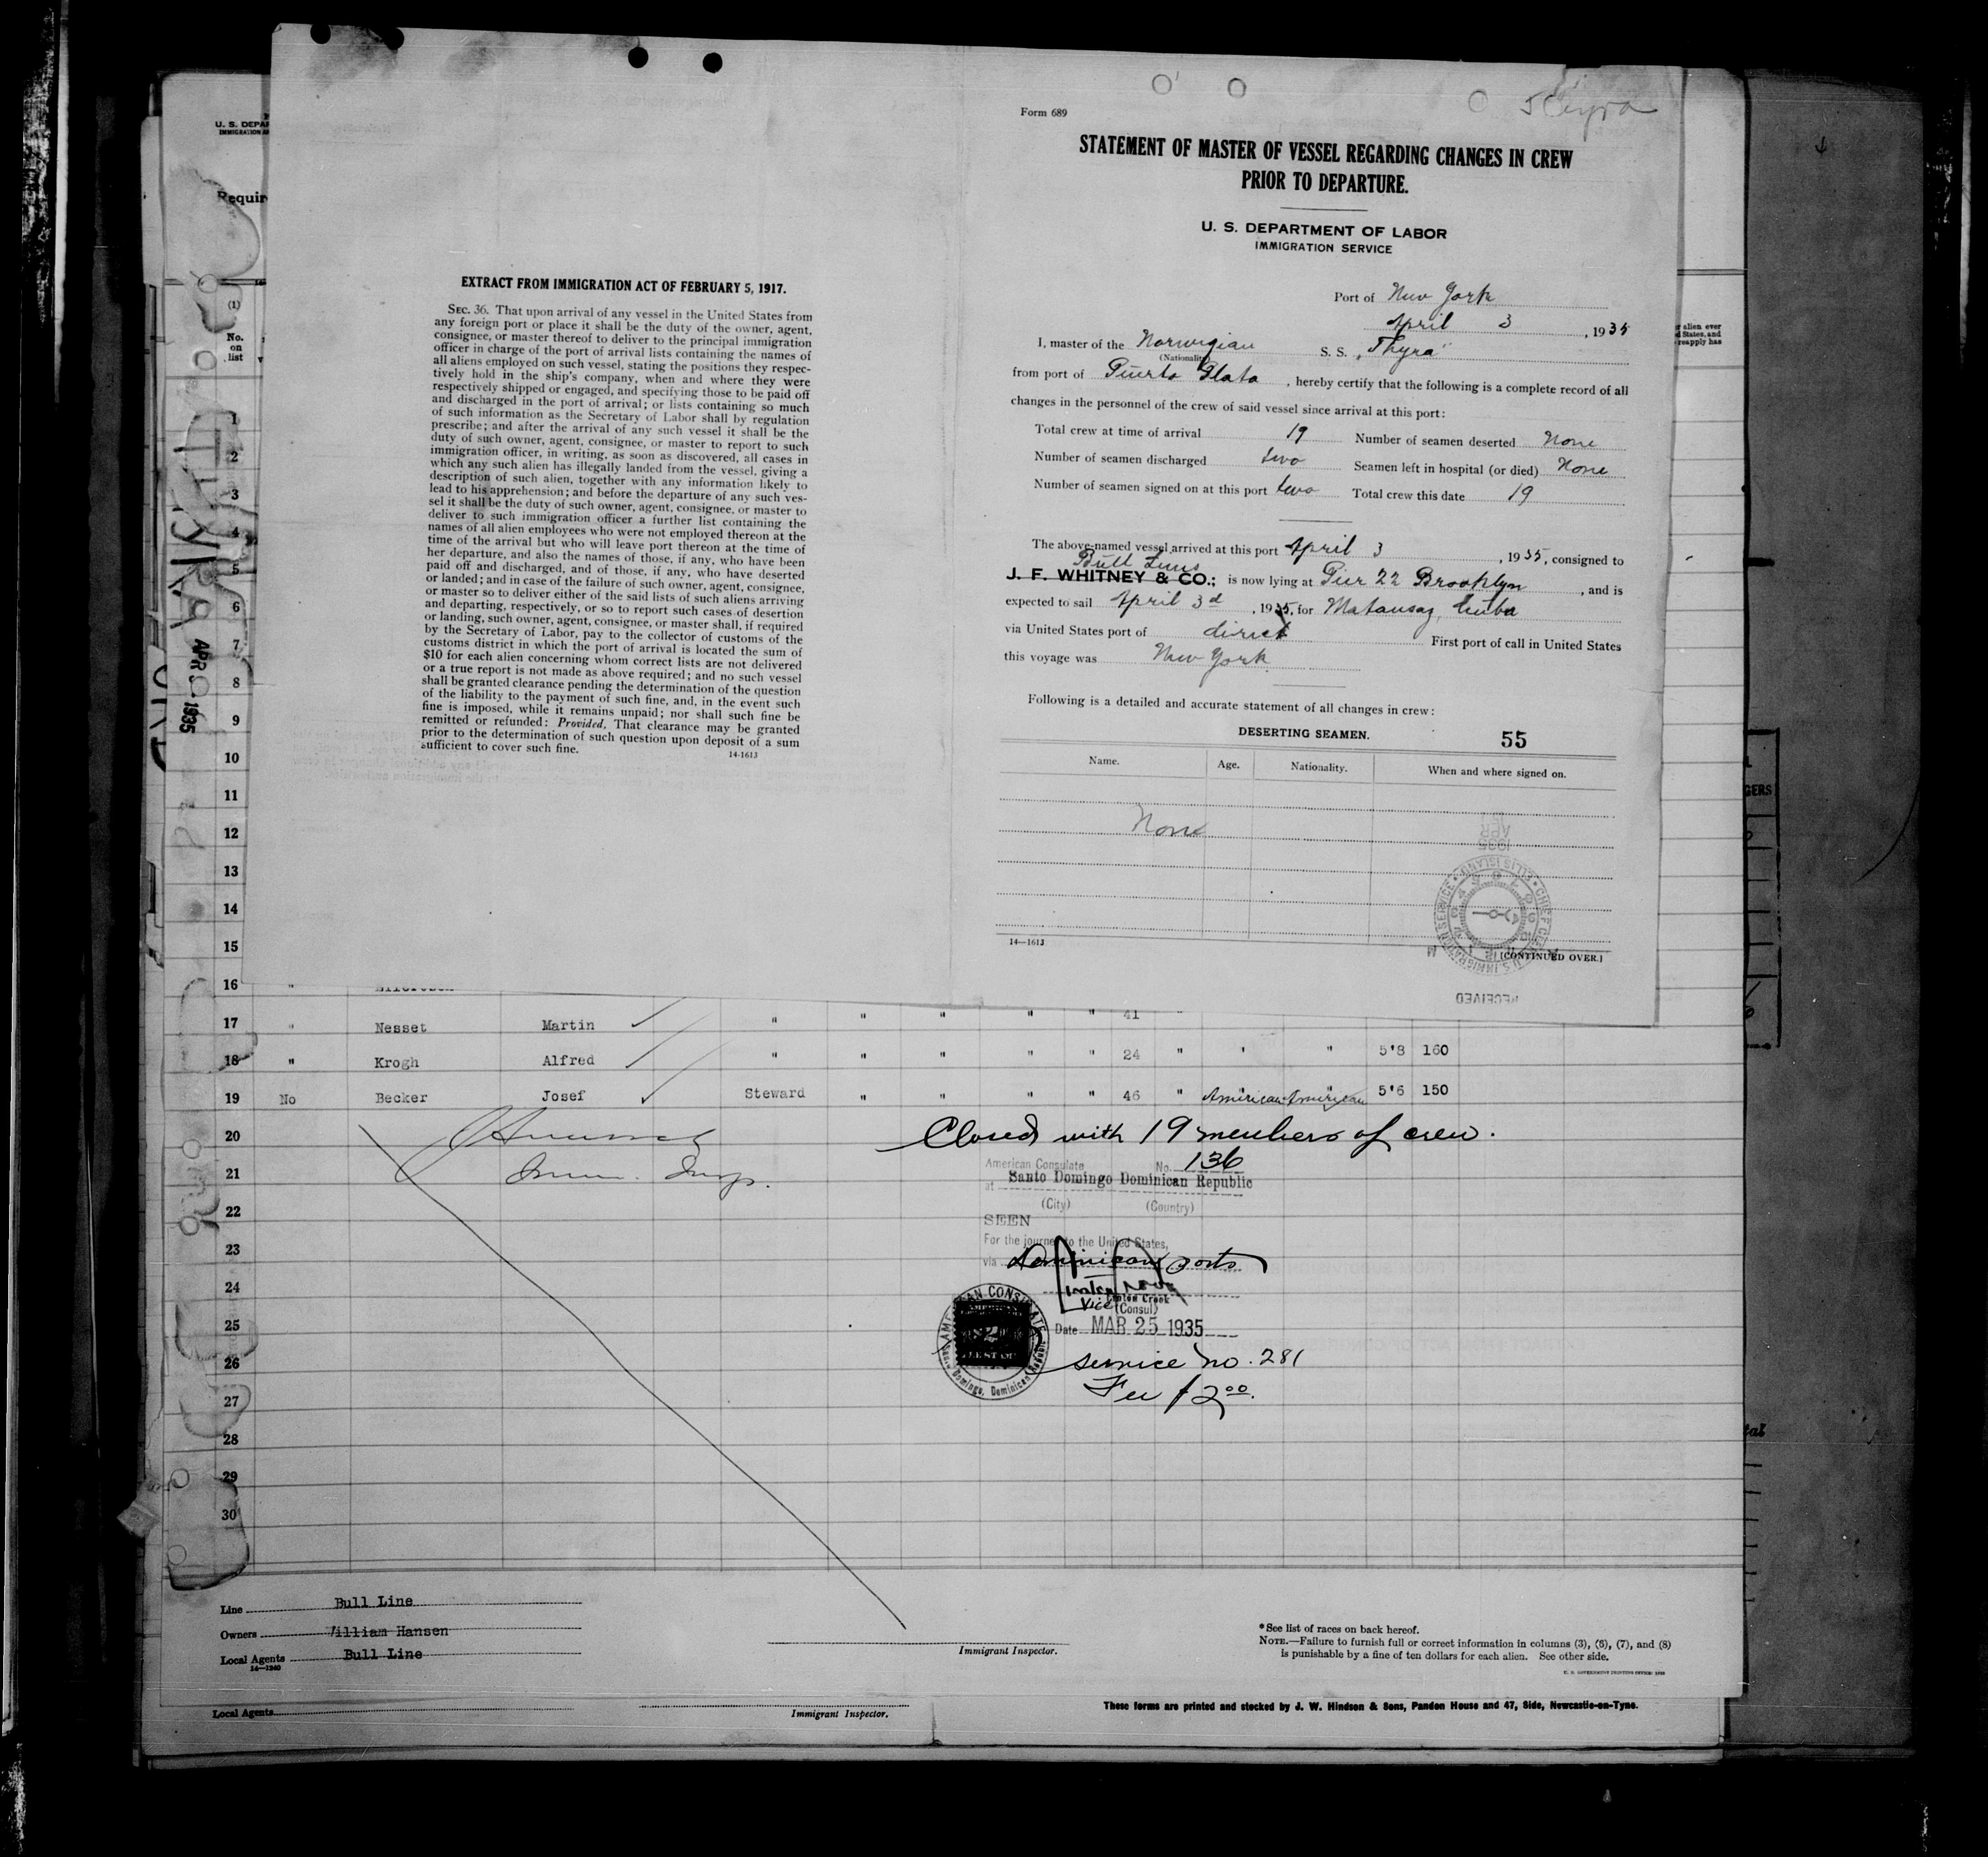 U. S. DEPA
IMMIGRATION A
Requir
(1)
No.
on
list
EXTRACT FROM IMMIGRATION ACT OF FEBRUARY 5, 1917.
SEC. 36. That upon arrival of any vessel in the United States from
any foreign port or place it shall be the duty of the owner, agent,
consignee, or master thereof to deliver to the principal immigration
officer in charge of the port of arrival lists containing the names of
all aliens employed on such vessel, stating the positions they respec-
tively hold in the ship's company, when and where they were
respectively shipped or engaged, and specifying those to be paid off
and discharged in the port of arrival; or lists containing so much
of such information as the Secretary of Labor shall by regulation
prescribe; and after the arrival of any such vessel it shall be the
duty of such owner, agent, consignee, or master to report to such
immigration officer, in writing, as soon as discovered, all cases in
which any such alien has illegally landed from the vessel, giving a
description of such alien, together with any information likely to
lead to his apprehension; and before the departure of any such ves-
sel it shall be the duty of such owner, agent, consignee, or master to
deliver to such immigration officer a further list containing the
names of all alien employees who were not employed thereon at the
time of the arrival but who will leave port thereon at the time of
her departure, and also the names of those, if any, who have been
paid off and discharged, and of those, if any, who have deserted
or landed; and in case of the failure of such owner, agent, consignee,
or master so to deliver either of the said lists of such aliens arriving
and departing, respectively, or so to report such cases of desertion
or landing, such owner, agent, consignee, or master shall, if required
by the Secretary of Labor, pay to the collector of customs of the
customs district in which the port of arrival is located the sum of
$10 for each alien concerning whom correct lists are not delivered
or a true report is not made as above required; and no such vessel
shall be granted clearance pending the determination of the question
of the liability to the payment of such fine, and, in the event such
fine is imposed, while it remains unpaid; nor shall such fine be
remitted or refunded: Provided, That clearance may be granted
prior to the determination of such question upon deposit of a sum
sufficient to cover such fine.
14-1613
Form 689
Thyra
STATEMENT OF MASTER OF VESSEL REGARDING CHANGES IN CREW
PRIOR TO DEPARTURE.
U. S. DEPARTMENT OF LABOR
IMMIGRATION SERVICE
Port of New York
April 3, 1935
I, master of the Norwegian S. S. "Thyra"
(Nationality)
from port of Puerto Plata, hereby certify that the following is a complete record of all
changes in the personnel of the crew of said vessel since arrival at this port:
Total crew at time of arrival 19 Number of seamen deserted None
Number of seamen discharged two Seamen left in hospital (or died) None
Number of seamen signed on at this port two Total crew this date 19
The above-named vessel arrived at this port April 3, 1935, consigned to
Bull Lines
J. F. WHITNEY & CO.; is now lying at Pier 22 Brooklyn, and is
expected to sail April 3d, 1935, for Matansaz, Cuba
via United States port of direct First port of call in United States
this voyage was New York
Following is a detailed and accurate statement of all changes in crew:
DESERTING SEAMEN. 55
Name. Age. Nationality. When and where signed on.
None
APR
1935
U.S. IMMIGRATION SERVICE CHIEF CLERK ELLIS ISLAND
14-1613
[CONTINUED OVER.]
RECEIVED
r alien ever
d States, and
reapply has
GERS
tal
THYRA
APR 1935
1
2
3
4
5
6
7
8
9
10
11
12
13
14
15
16 "
17 " Nesset Martin " " " " " 41
18 " Krogh Alfred " " " " " 24 " " " 5'8 160
19 No Becker Josef Steward " " " " 46 " American American 5'6 150
20 Closed with 19 members of crew.
21 Imm. Insp.
American Consulate No. 136
at Santo Domingo Dominican Republic
(City) (Country)
22
SEEN
23
For the journey to the United States,
via Dominican ports
24
Vice (Consul)
25
Date MAR 25 1935
AMERICAN CONSULATE
Santo Domingo, Dominican Republic
26
Service no. 281
27
Fee $2.00.
28
29
30
Line Bull Line
Owners William Hansen
Local Agents Bull Line
14-1240
Immigrant Inspector.
*See list of races on back hereof.
NOTE.—Failure to furnish full or correct information in columns (3), (5), (7), and (8)
is punishable by a fine of ten dollars for each alien. See other side.
Local Agents
Immigrant Inspector.
These forms are printed and stocked by J. W. Hindson & Sons, Pandon House and 47, Side, Newcastle-on-Tyne.